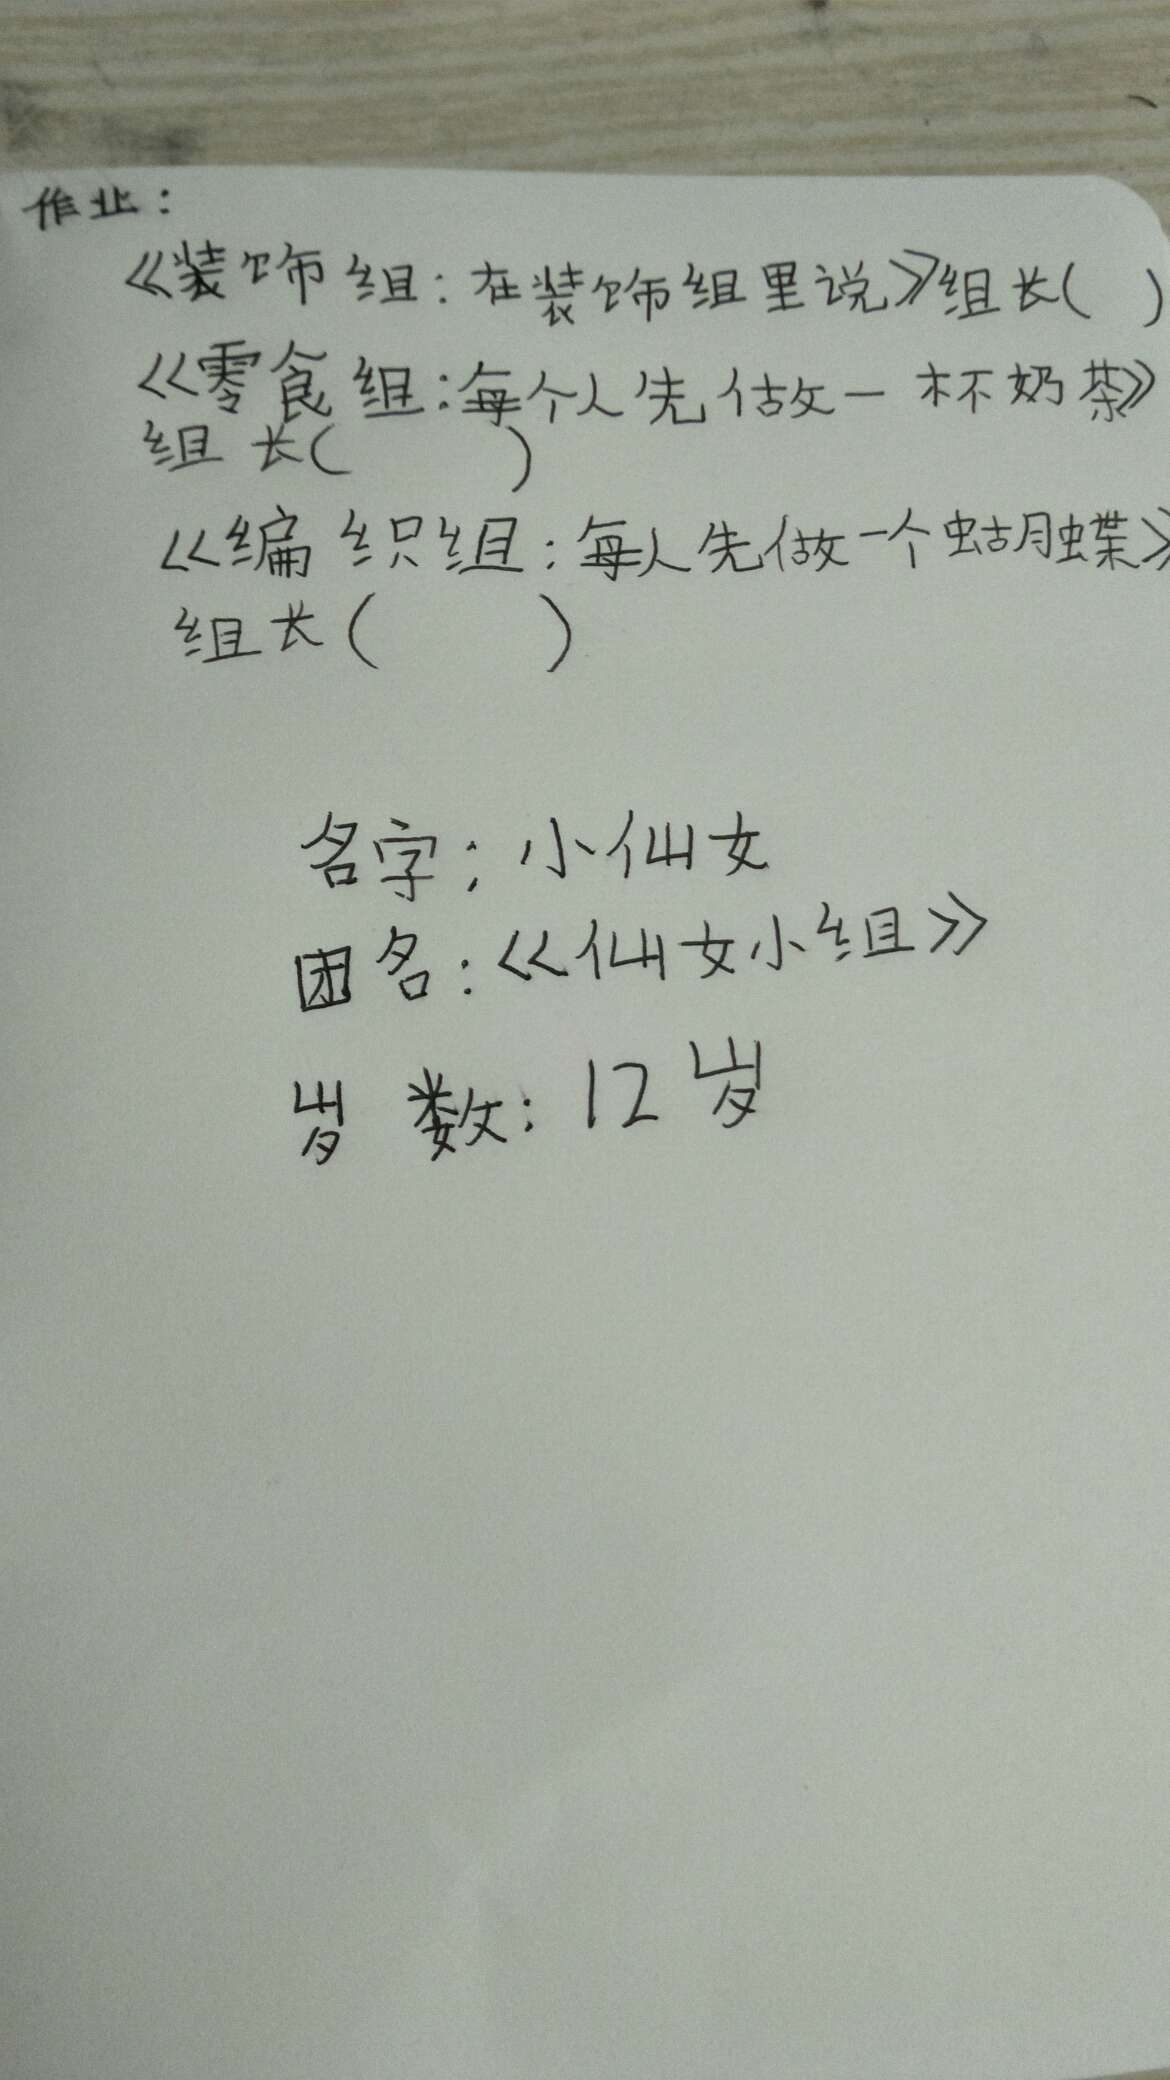 作业：
《装饰组：在装饰组里说》组长(  )
《零食组：每个人先做一杯奶茶》
组长(    )
《编织组：每人先做一个蝴蝶》
组长(    )
名字：小仙女
团名：《仙女小组》
岁数：12岁